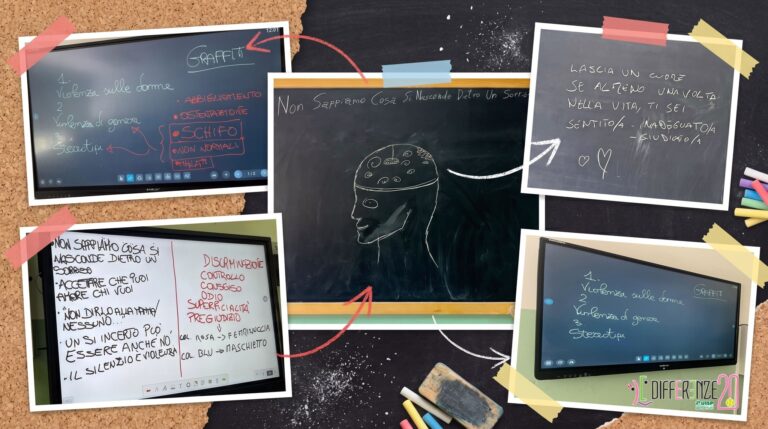 GRAFFITI
1.
Violenza sulle donne
2
Violenza di genere
3
Stereotipi
• ABBIGLIAMENTO
• OSTENTAZIONE
• SCHIFO
• NON NORMALI
NON SAPPIAMO COSA SI
NASCONDE DIETRO UN
SORRISO
• ACCETTARE CHE PUOI
AMARE CHI VUOI
• "NON DIRLO ALLA MAMMA/
NESSUNO...
• UN SI INCERTO PUO'
ESSERE ANCHE NO
• IL SILENZIO È VIOLENZA
DISCRIMINAZIONE
CONTROLLO
CONSENSO
ODIO
SUPERFICIALITÀ
PREGIUDIZIO
COL. ROSA → FEMMINUCCIA
COL BLU → MASCHIETTO
Non Sappiamo Cosa Si Nasconde Dietro Un Sorriso
LASCIA UN CUORE
SE ALMENO UNA VOLTA
NELLA VITA, TI SEI
SENTITO/A - INADEGUATO/A
- GIUDICATO/A
GRAFFITI
1.
Violenza sulle donne
2
Violenza di genere
3
Stereotipi
DIFFERENZE 2.0